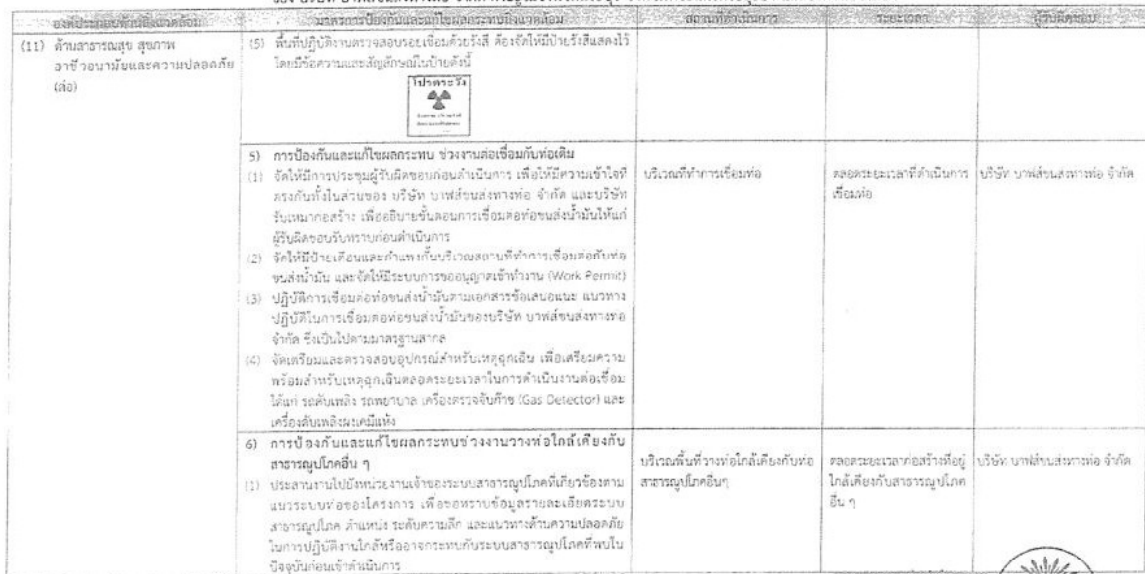 องค์ประกอบด้านสิ่งแวดล้อม
มาตรการป้องกันและแก้ไขผลกระทบสิ่งแวดล้อม
สถานที่ดำเนินการ
ระยะเวลา
ผู้รับผิดชอบ
(11) ด้านสาธารณสุข สุขภาพ
อาชีวอนามัยและความปลอดภัย
(ต่อ)
(5) พื้นที่ปฏิบัติงานตรวจสอบรอยเชื่อมด้วยรังสี ต้องจัดให้มีป้ายรังสีแสดงไว้
โดยมีข้อความและสัญลักษณ์ในป้ายดังนี้
โปรดระวัง
5) การป้องกันและแก้ไขผลกระทบ ช่วงงานต่อเชื่อมกับท่อเดิม
(1) จัดให้มีการประชุมผู้รับผิดชอบก่อนดำเนินการ เพื่อให้มีความเข้าใจที่
ตรงกันทั้งในส่วนของ บริษัท บาฟส์ขนส่งทางท่อ จำกัด และบริษัท
รับเหมาก่อสร้าง เพื่ออธิบายขั้นตอนการเชื่อมต่อท่อขนส่งน้ำมันให้แก่
ผู้รับผิดชอบรับทราบก่อนดำเนินการ
(2) จัดให้มีป้ายเตือนและกำแพงกั้นบริเวณสถานที่ทำการเชื่อมต่อกับท่อ
ขนส่งน้ำมัน และจัดให้มีระบบการขออนุญาตเข้าทำงาน (Work Permit)
(3) ปฏิบัติการเชื่อมต่อท่อขนส่งน้ำมันตามเอกสารข้อเสนอแนะ แนวทาง
ปฏิบัติในการเชื่อมต่อท่อขนส่งน้ำมันของบริษัท บาฟส์ขนส่งทางท่อ
จำกัด ซึ่งเป็นไปตามมาตรฐานสากล
(4) จัดเตรียมและตรวจสอบอุปกรณ์สำหรับเหตุฉุกเฉิน เพื่อเตรียมความ
พร้อมสำหรับเหตุฉุกเฉินตลอดระยะเวลาในการดำเนินงานต่อเชื่อม
ได้แก่ รถดับเพลิง รถพยาบาล เครื่องตรวจจับก๊าซ (Gas Detector) และ
เครื่องดับเพลิงผงเคมีแห้ง
บริเวณที่ทำการเชื่อมท่อ
ตลอดระยะเวลาที่ดำเนินการ
เชื่อมท่อ
บริษัท บาฟส์ขนส่งทางท่อ จำกัด
6) การป้องกันและแก้ไขผลกระทบช่วงงานวางท่อใกล้เคียงกับ
สาธารณูปโภคอื่น ๆ
(1) ประสานงานไปยังหน่วยงานเจ้าของระบบสาธารณูปโภคที่เกี่ยวข้องตาม
แนวระบบท่อของโครงการ เพื่อขอทราบข้อมูลรายละเอียดระบบ
สาธารณูปโภค ตำแหน่ง ระดับความลึก และแนวทางด้านความปลอดภัย
ในการปฏิบัติงานใกล้หรืออาจกระทบกับระบบสาธารณูปโภคที่พบใน
ปัจจุบันก่อนเข้าดำเนินการ
บริเวณพื้นที่วางท่อใกล้เคียงกับท่อ
สาธารณูปโภคอื่นๆ
ตลอดระยะเวลาก่อสร้างที่อยู่
ใกล้เคียงกับสาธารณูปโภค
อื่น ๆ
บริษัท บาฟส์ขนส่งทางท่อ จำกัด